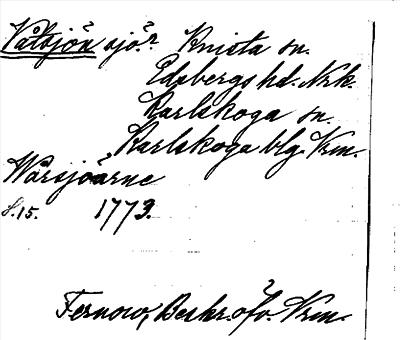 Våtsjön sjö? Knista sn.
Edsbergs hd. Nrk.
Karlskoga sn.
Karlskoga blg. Vrm.
Wårsjöarne
S. 15. 1773.
Fernow, Beskr. öfv. Vrm.